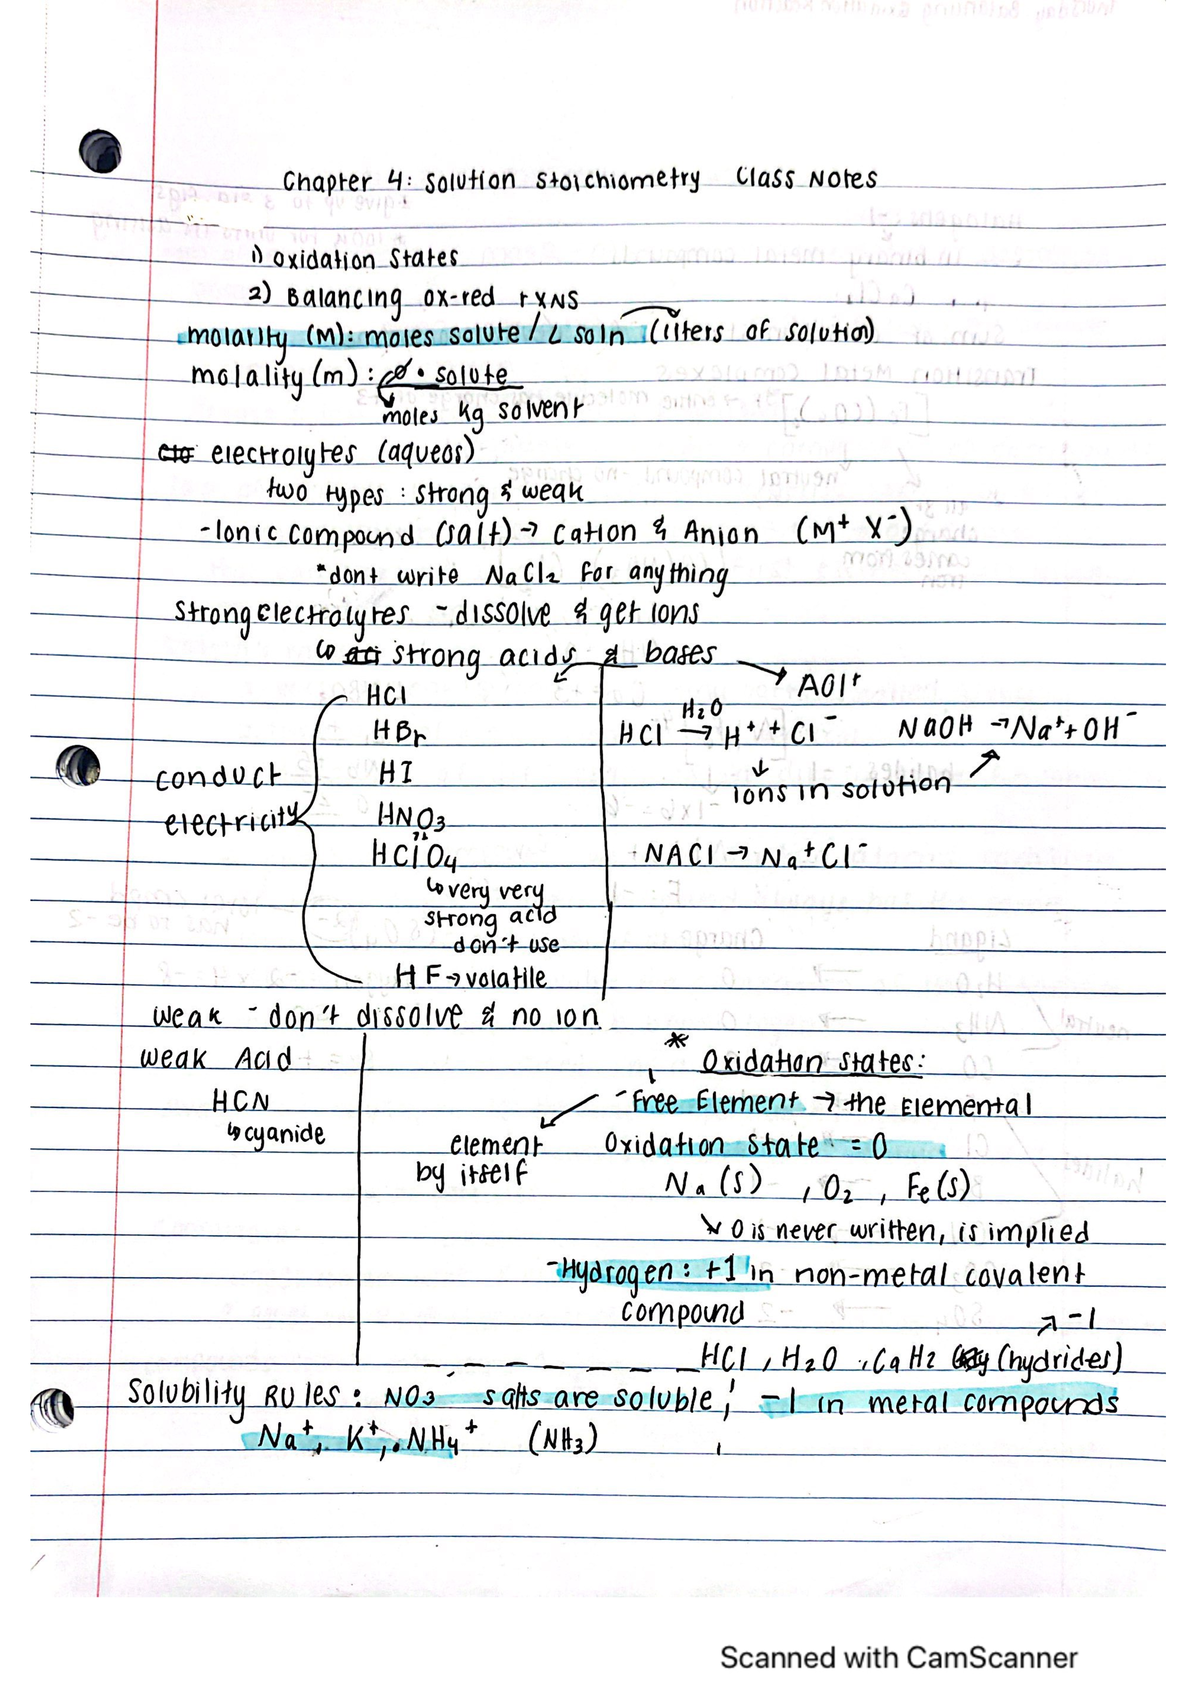 Chapter 4: Solution Stoichiometry Class Notes
1) Oxidation States
2) Balancing ox-red rxns
molarity (M): moles solute / L soln (liters of solution)
molality (m): • solute
moles kg solvent
electrolytes (aqueos)
two types: strong & weak
- Ionic Compound (salt) → Cation & Anion (M⁺ X⁻)
*dont write NaCl₂ for anything
Strong Electrolytes - dissolve & get ions
↳ strong acids & bases
HCl
HBr
HI
HNO₃
HClO₄
↳ very very
strong acid
don't use
HF → volatile
conduct
electricity
HCl →H₂O H⁺ + Cl⁻
NaOH → Na⁺ + OH⁻
ions in solution
NACl → Na⁺ Cl⁻
weak - don't dissolve & no ion
Weak Acid
HCN
↳ cyanide
* Oxidation States:
- Free Element → the Elemental
Oxidation State = 0
element
by itself
Na (s) , O₂ , Fe(s)
↘ 0 is never written, is implied
- Hydrogen: +1 in non-metal covalent
compound
↗ -1
HCl , H₂O , CaH2 (hydrides)
-1 in metal compounds
Solubility Rules: NO₃⁻ salts are soluble;
Na⁺, K⁺, NH₄⁺ (NH₃)
Scanned with CamScanner